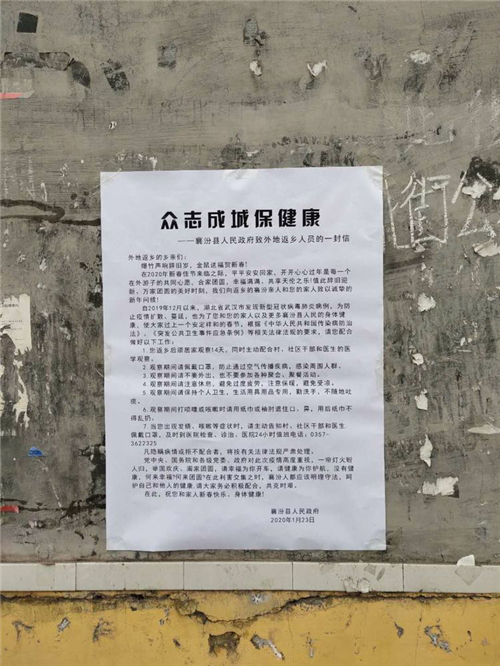 众志成城保健康
——襄汾县人民政府致外地返乡人员的一封信
外地返乡的乡亲们:
爆竹声响辞旧岁,金鼠送福贺新春!
在2020年新春佳节来临之际,平平安安回家,开开心心过年是每一个
在外游子的共同心愿,合家团圆,幸福满满,共享天伦之乐!值此辞旧迎
新、万家团圆的美好时刻,我们向返乡的襄汾亲人和您的家人致以诚挚的
新年问候!
自2019年12月以来,湖北省武汉市发现新型冠状病毒肺炎病例,为防
止疫情扩散、蔓延,也为了您和您的家人以及更多襄汾县人民的身体健
康,使大家过上一个安定祥和的春节,根据《中华人民共和国传染病防治
法》、《突发公共卫生事件应急条例》等相关法律法规的要求,请您配合
做好以下工作:
1.您返乡后须居家观察14天,同时主动配合村、社区干部和医生的医
学观察。
2.观察期间请佩戴口罩,防止通过空气传播疾病,感染周围人群。
3.观察期间请不要外出,也不要参加各种聚会、聚餐活动。
4.观察期间请注意休息,避免过度疲劳,注意保暖,避免受凉。
5.观察期间请保持个人卫生,生活用具用品专用,勤洗手,不随地吐
痰。
6.观察期间打喷嚏或咳嗽时请用纸巾或袖肘遮住口、鼻,用后纸巾不
得乱扔。
7.当您出现发烧、咳嗽等症状时,请主动告知村、社区干部和医生,
佩戴口罩,及时到医院检查、诊治。医院24小时值班电话:0357-
3622325
凡隐瞒病情或拒不配合者,将按有关法律法规严肃处理。
党中央、国务院和各级党委、政府对此次疫情高度重视,一帘灯火盼
人归,举国欢庆、阖家团圆,请幸福为你开车,请健康为你护航,没有健
康,何来幸福?何来团圆?在此利害交集之时,襄汾人都应该明理守法,呵
护自己和他人的健康,请大家务必积极配合、共克时艰。
在此,祝您和家人新春快乐,身体健康!
襄汾县人民政府
2020年1月23日